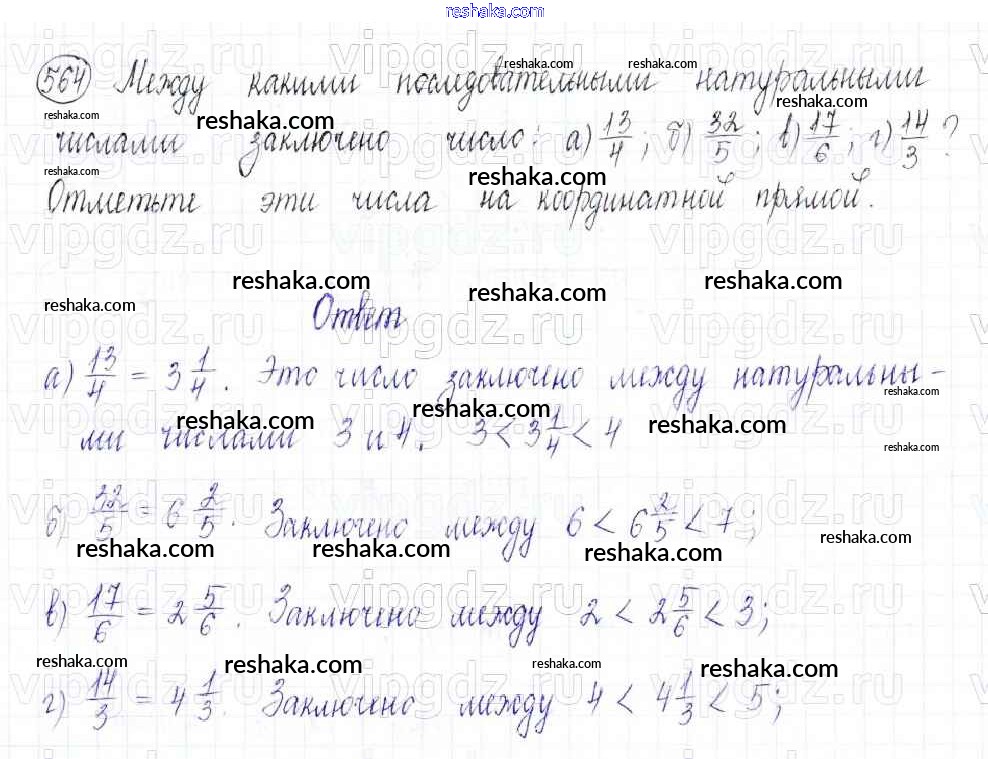 reshaka.com
564 Между какими последовательными натуральными
числами заключено число: а) 13/4; б) 32/5; в) 17/6; г) 14/3?
Отметьте эти числа на координатной прямой.
Ответ
а) 13/4 = 3 1/4. Это число заключено между натуральны-
ми числами 3 и 4. 3 < 3 1/4 < 4
б) 32/5 = 6 2/5. Заключено между 6 < 6 2/5 < 7;
в) 17/6 = 2 5/6. Заключено между 2 < 2 5/6 < 3;
г) 14/3 = 4 1/3. Заключено между 4 < 4 1/3 < 5;
vipgdz.ru